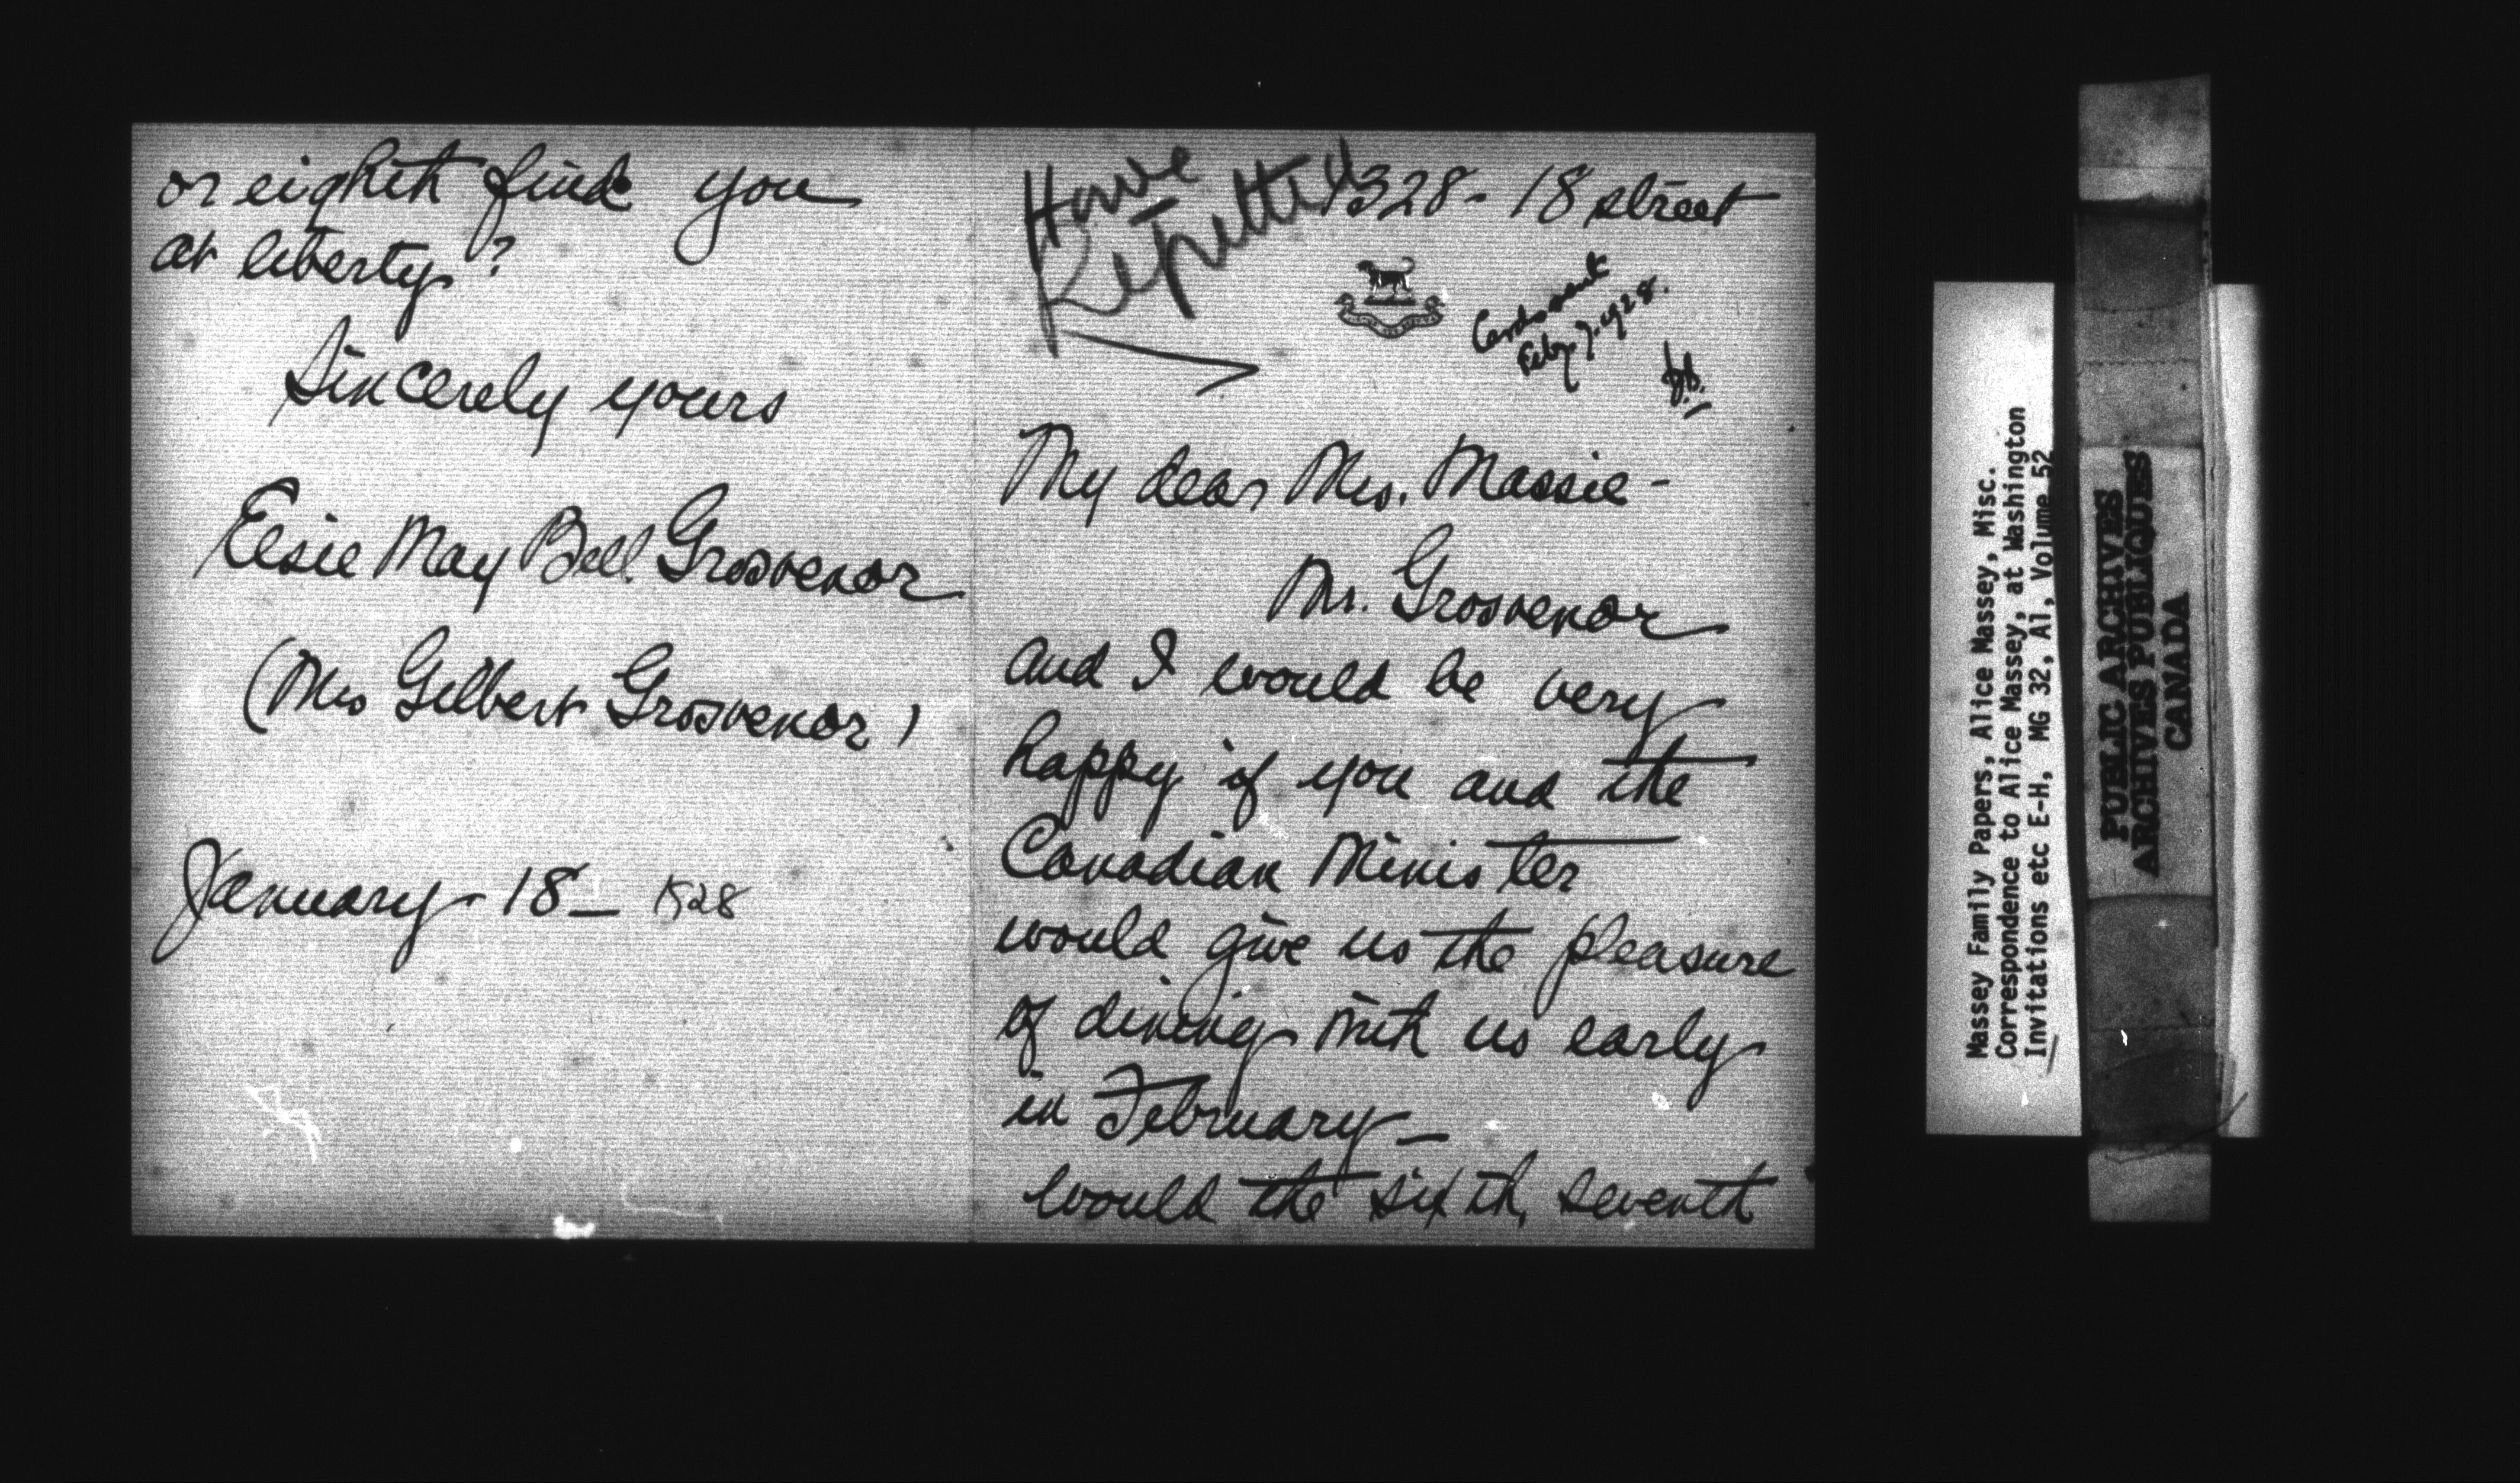 Have
Regretted
1328 - 18 street
Cards sent
Feby. 7. 1928.
My dear Mrs. Massie -
Mr. Grosvenor
and I would be very
happy if you and the
Canadian Minister
would give us the pleasure
of dining with us early
in February _
Would the sixth, seventh
or eighth find you
at liberty?
Sincerely yours
Elsie May Bell Grosvenor
(Mrs Gilbert Grosvenor)
January - 18 _ 1928
Massey Family Papers, Alice Massey, Misc.
Correspondence to Alice Massey, at Washington
Invitations etc E-H, MG 32, A1, Volume 52
PUBLIC ARCHIVES
ARCHIVES PUBLIQUES
CANADA